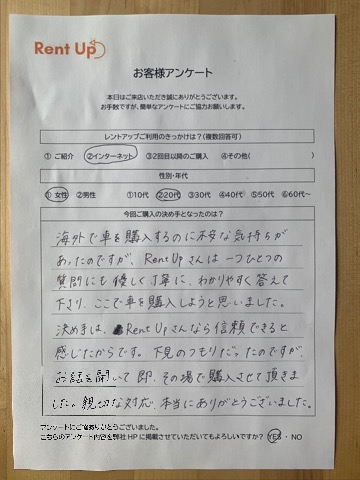 Rent Up
お客様アンケート
本日はご来店いただき誠にありがとうございます。
お手数ですが、簡単なアンケートにご協力お願いします。
レントアップご利用のきっかけは？(複数回答可)
① ご紹介 ②インターネット ③2回目以降のご購入 ④その他( )
性別・年代
① 女性 ②男性 ①10代 ②20代 ③30代 ④40代 ⑤50代 ⑥60代～
今回ご購入の決め手となったのは？
海外で車を購入するのに不安な気持ちが
あったのですが、Rent Upさんは一つひとつの
質問にも優しく丁寧に、わかりやすく答えて
下さり、ここで車を購入しようと思いました。
決め手は、Rent Upさんなら信頼できると
感じたからです。下見のつもりだったのですが、
お話を聞いて即、その場で購入させて頂きま
した。親切な対応、本当にありがとうございました。
アンケートにご協力ありがとうございました。
こちらのアンケート内容を弊社HPに掲載させていただいてもよろしいですか？ YES ・ NO